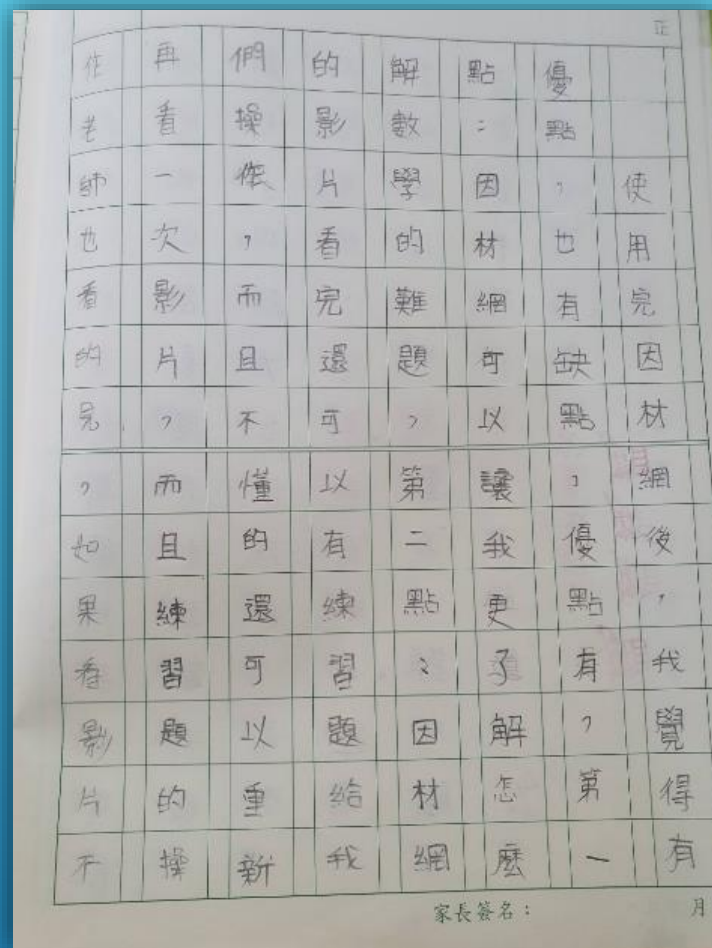 正
使用完因材網後，我覺得有
優點，也有缺點，優點有，第一
點：因材網可以讓我更了解怎麼
解數學的難題，第二點：因材網
的影片看完還可以有練習題給我
們操作，而且不懂的還可以重新
再看一次影片，而且練習題的操
作老師也看的見，如果看影片不
家長簽名： 月